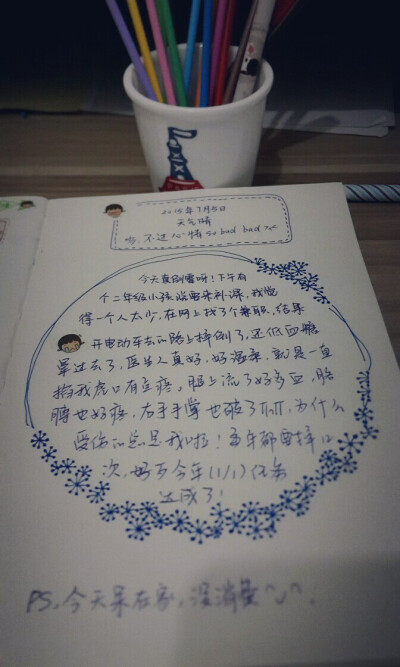 2015年7月5日
天气晴
呜，不过心情so bad bad
今天真倒霉呀！下午有
个二年级小孩说要来补课，我觉
得一个人太少，在网上找了个兼职，结果
开电动车去的路上摔倒了，还低血糖
晕过去了，医生人真好，好温柔，就是一直
掐我虎口有点疼。腿上流了好多血，胳
膊也好疼，右手手掌也破了TTT，为什么
受伤的总是我啦！每年都要摔
次，好在今年(1/1)任务
达成了！
PS，今天呆在家，没消费^ν^.